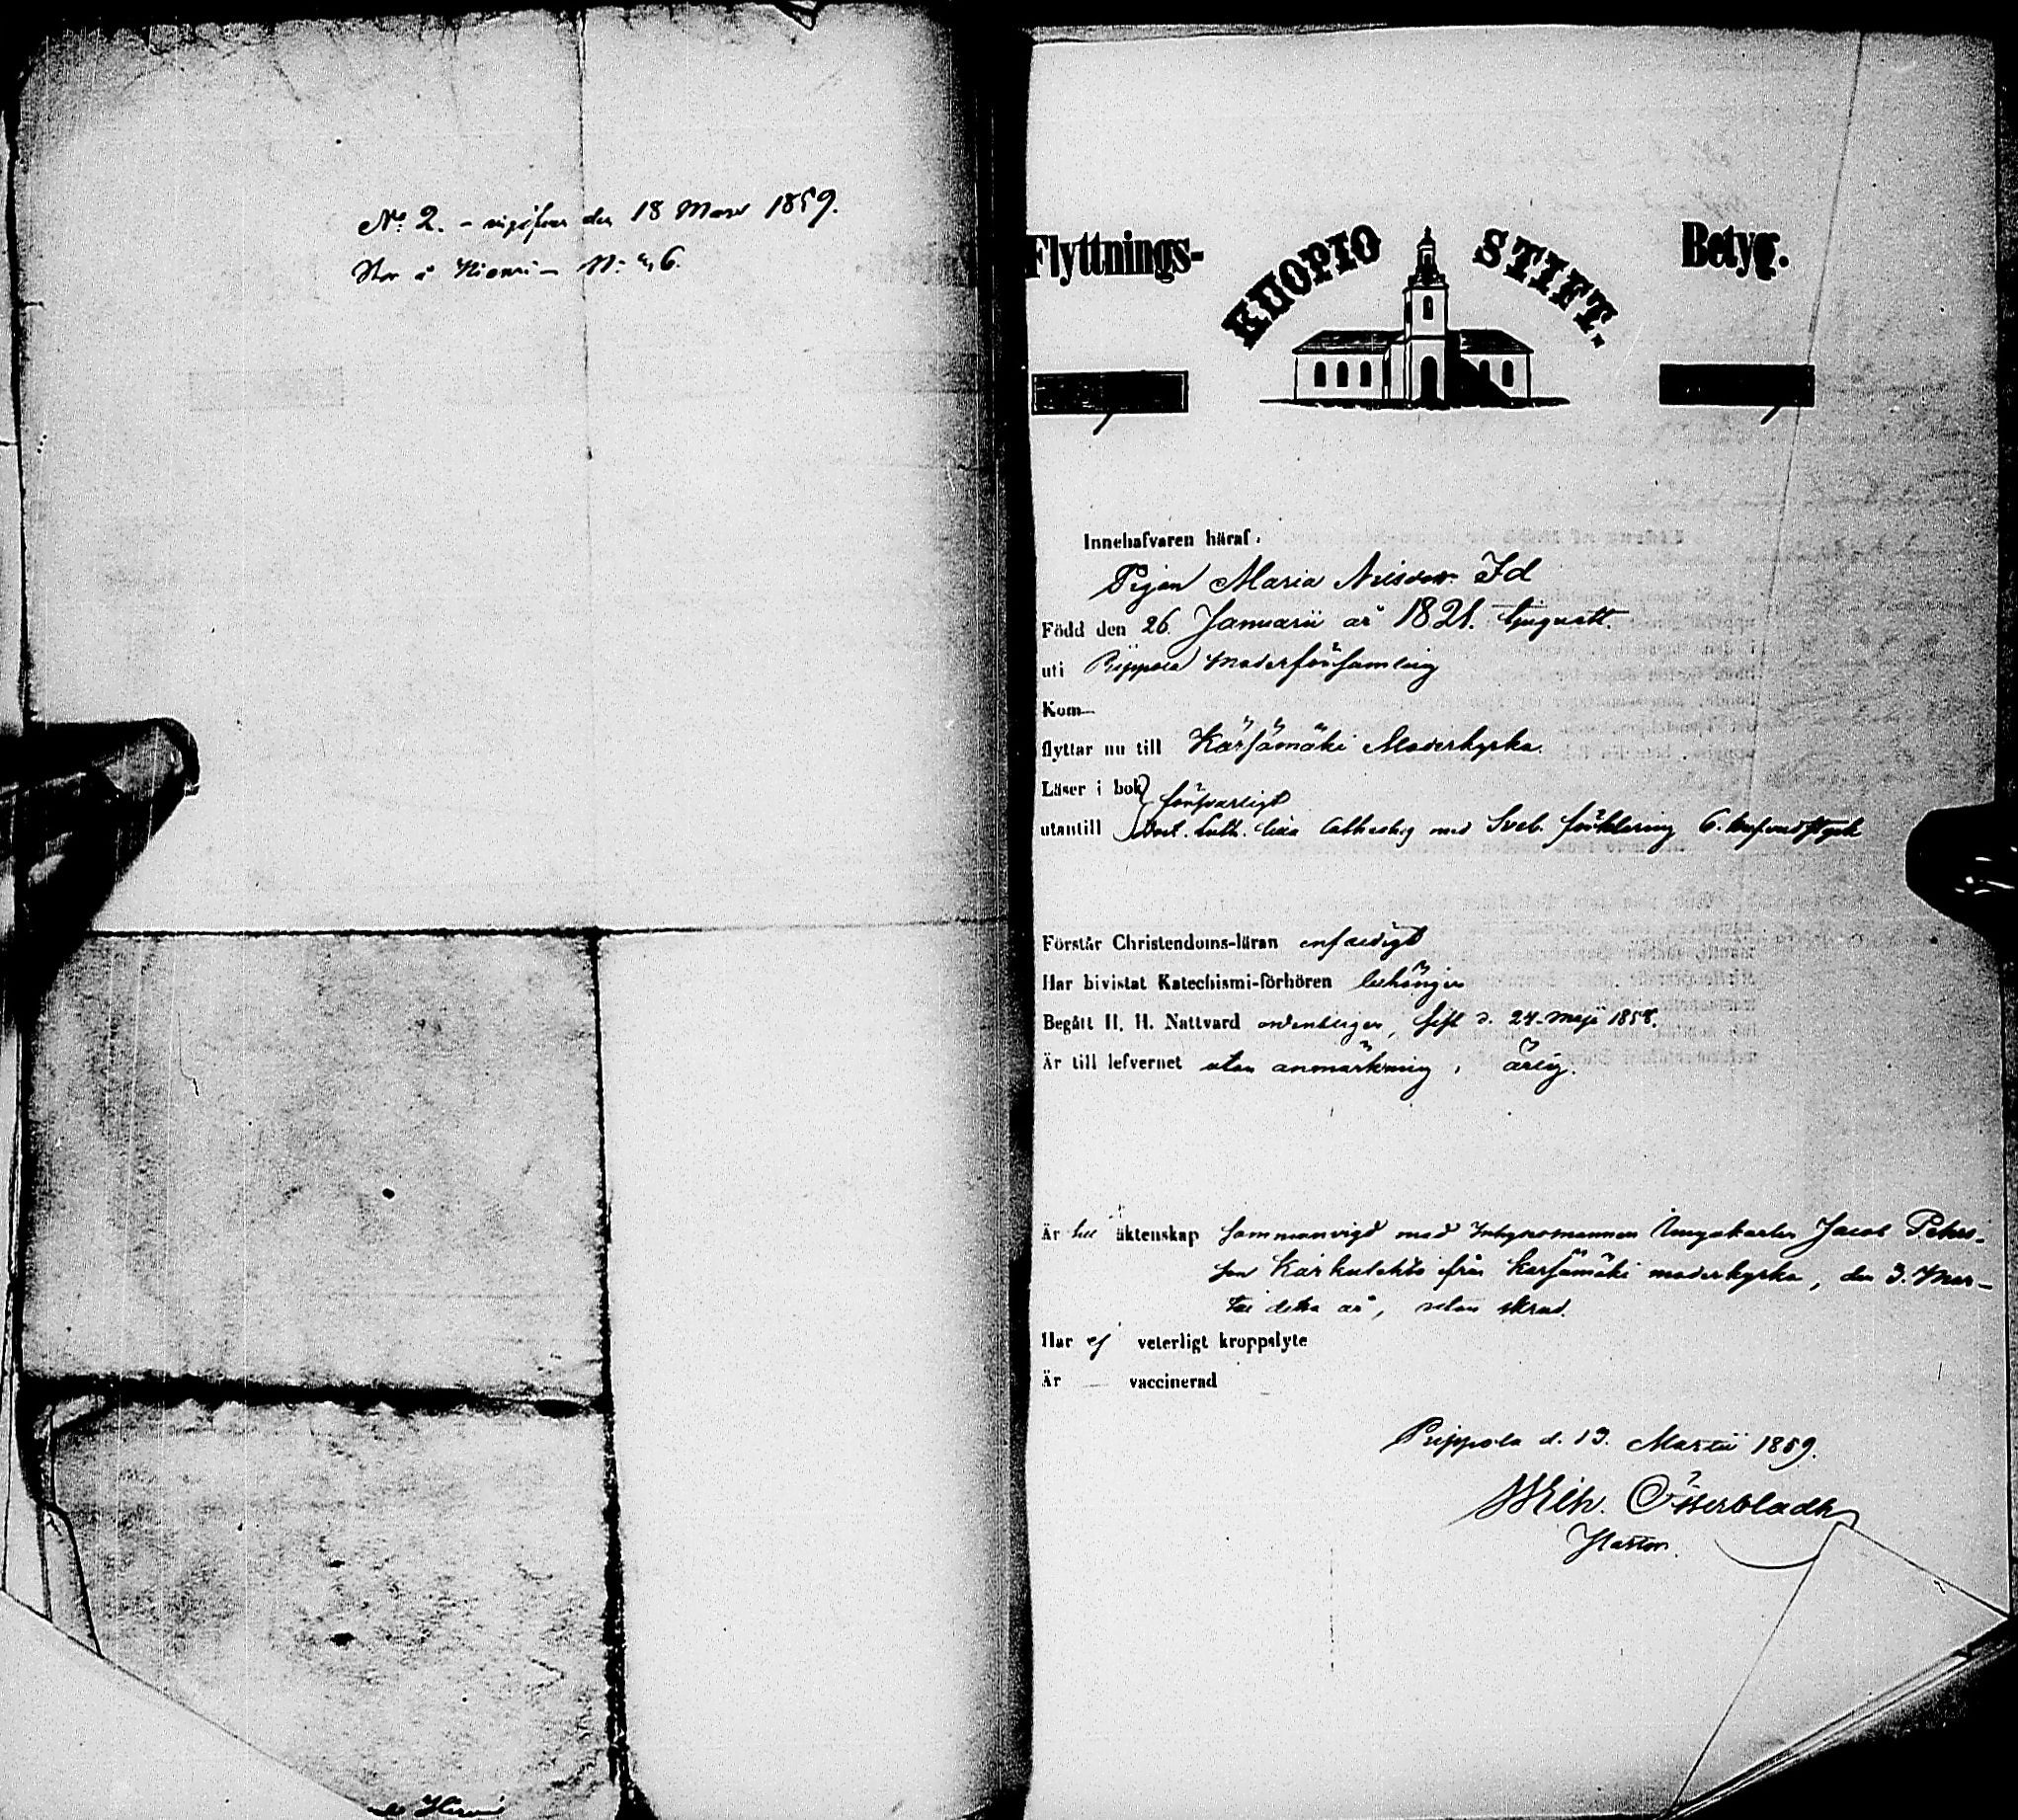 No: 2. – den 18 Mars 1859.
Niemi – No: 6.
Flyttnings- KUOPIO STIFT. Betyg.
Innehafvaren häraf,
Pigan Maria Nilsdotter Id
Född den 26. Januarii år 1821. tjuguett.
uti Pippola Moderförsamling
Kom—
flyttar nu till Kärsämäki Moderkyrka.
Läser i bok försvarligt
utantill Luth. lilla med Sveb. förklaring 6. hufvudstyck
Förstår Christendoms-läran enfaldigt
Har bivistat Katechismi-förhören behörigen
Begått H. H. Nattvard ordentligen, sist d. 24. Maji 1858.
Är till lefvernet utan anmärkning, ärlig.
Är till äktenskap sammanvigd med Inhysesmannen Ungakarlen Jacob Peters-
son från Kärsämäki moderkyrka, den 3. Mar-
tii detta år,
Har ej veterligt kroppslyte
Är — vaccinerad
Pippola d. 13. Martii 1859.
Wilh. Österbladh
Pastor.